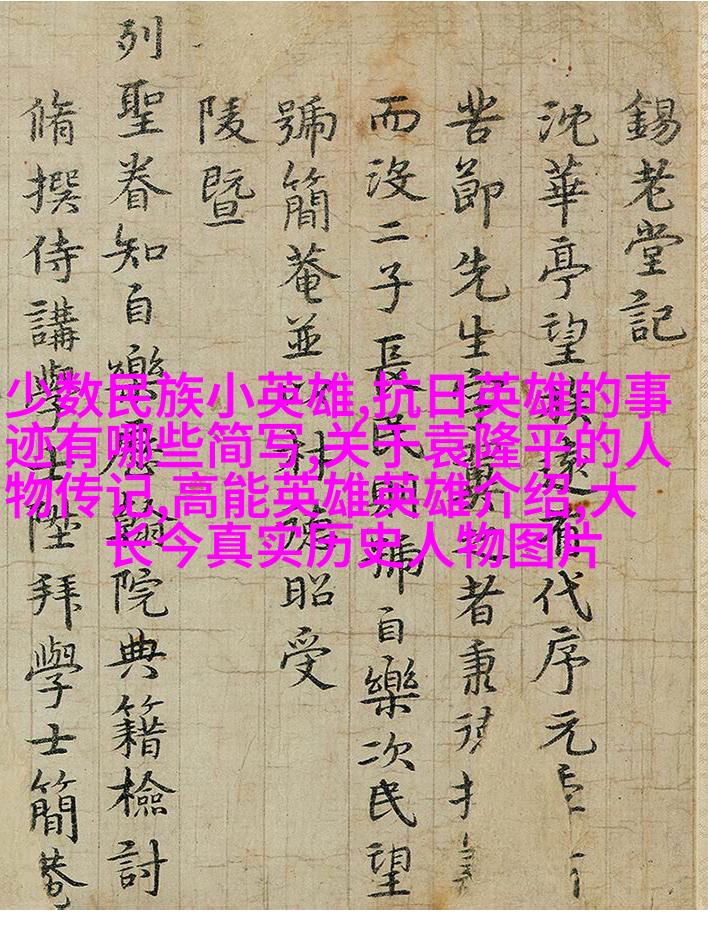 錫老堂記
沈華亭望族遠有代序元
苦節先生自者秉
而沒二子長民則號自樂次民望
號簡菴並以材昭受
陵暨
列聖眷知自樂歷翰院典籍檢討
脩撰侍講學士陞拜學士簡菴
少数民族小英雄,抗日英雄的事
迹有哪些简写,关于袁隆平的人
物传记,高能英雄英雄介绍,大
长今真实历史人物图片